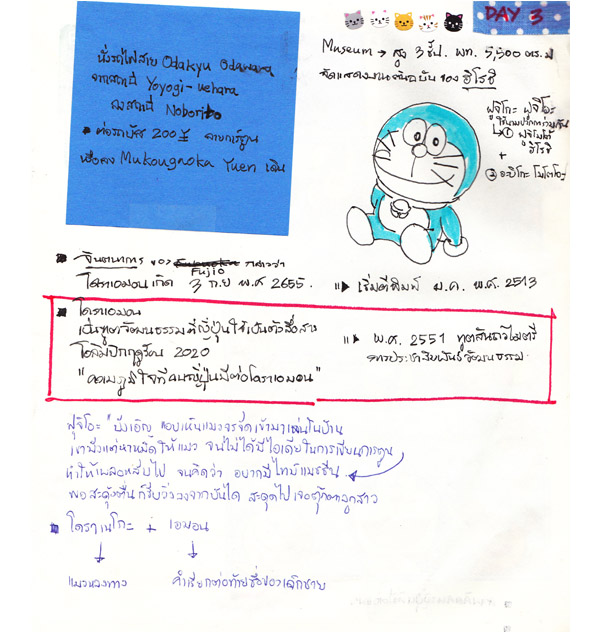 DAY 3
นั่งรถไฟสาย Odakyu Odawara
จากสถานี Yoyogi-uehara
ลงสถานี Noborito
* ต่อรถบัส 200 ¥ ลายการ์ตูน
หรือลง Mukougaoka Yuen เดิน
Museum → สูง 3 ชั้น. พท. 5,500 ตร.ม
จัดแสดงงานต้นฉบับ ของ ฮิโรชิ
ฟุจิโกะ ฟุจิโอะ
ใช้นามปากการ่วมกัน
↳ ① ฟุจิโมโต้
ฮิโรชิ
+
② อะบิโกะ โมโตโอะ
จินตนาการ ของ Fujio กล่าวว่า
โดราเอมอน เกิด 3 ก.ย พ.ศ 2655.
เริ่มตีพิมพ์ ม.ค. พ.ศ. 2513
โดราเอมอน
เป็นทูตวัฒนธรรม ที่ญี่ปุ่นใช้เป็นตัวสื่อสาร
โอลิมปิกฤดูร้อน 2020
"ความภูมิใจที่คนญี่ปุ่นมีต่อโดราเอมอน"
พ.ศ. 2551 ทูตสันถวไมตรี
การประชาสัมพันธ์วัฒนธรรม
ฟุจิโอะ "บังเอิญ แอบเห็นแมวจรจัดเข้ามาเล่นในบ้าน
เขามัวแต่หาหมัดให้แมว จนไม่ได้มีไอเดียในการเขียนการ์ตูน
ทำให้เผลอหลับไป จนคิดว่า อยากมีไทม์แมชชีน
พอสะดุ้งตื่น ก็รีบวิ่งลงจากบันได สะดุดไปเจอตุ๊กตาลูกสาว
โดราเนโกะ + เอมอน
แมวหลงทาง
คำเรียกต่อท้ายชื่อของเด็กชาย